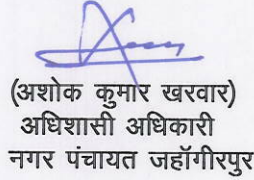 (अशोक कुमार खरवार)
अधिशासी अधिकारी
नगर पंचायत जहॉगीरपुर